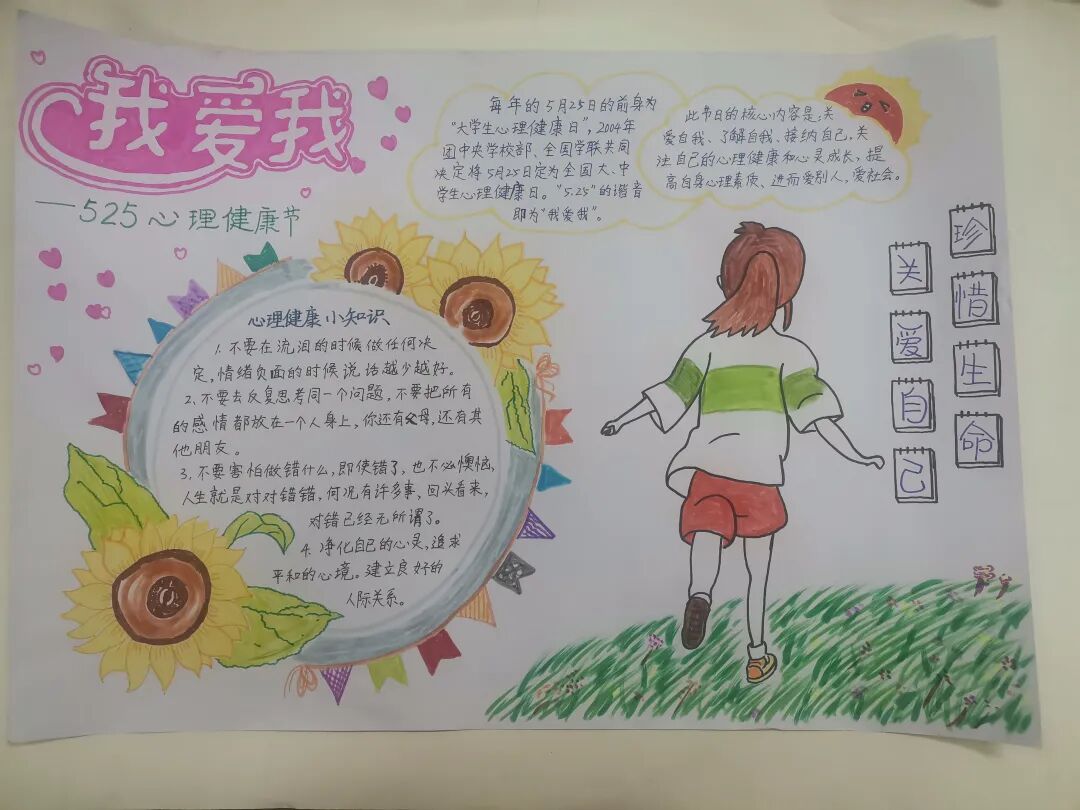 我爱我
—525心理健康节
每年的5月25日的前身为
“大学生心理健康日”,2004年
团中央学校部、全国学联共同
决定将5月25日定为全国大、中
学生心理健康日。“5.25”的谐音
即为“我爱我”。
此节日的核心内容是:关
爱自我、了解自我、接纳自己,关
注自己的心理健康和心灵成长,提
高自身心理素质、进而爱别人,爱社会。
心理健康小知识
1.不要在流泪的时候做任何决
定,情绪负面的时候说话越少越好。
2、不要去反复思考同一个问题,不要把所有
的感情都放在一个人身上,你还有父母,还有其
他朋友。
3.不要害怕做错什么,即使错了,也不必懊恼,
人生就是对对错错,何况有许多事,回头看来,
对错已经无所谓了。
4.净化自己的心灵,追求
平和的心境。建立良好的
人际关系。
关爱自己
珍惜生命